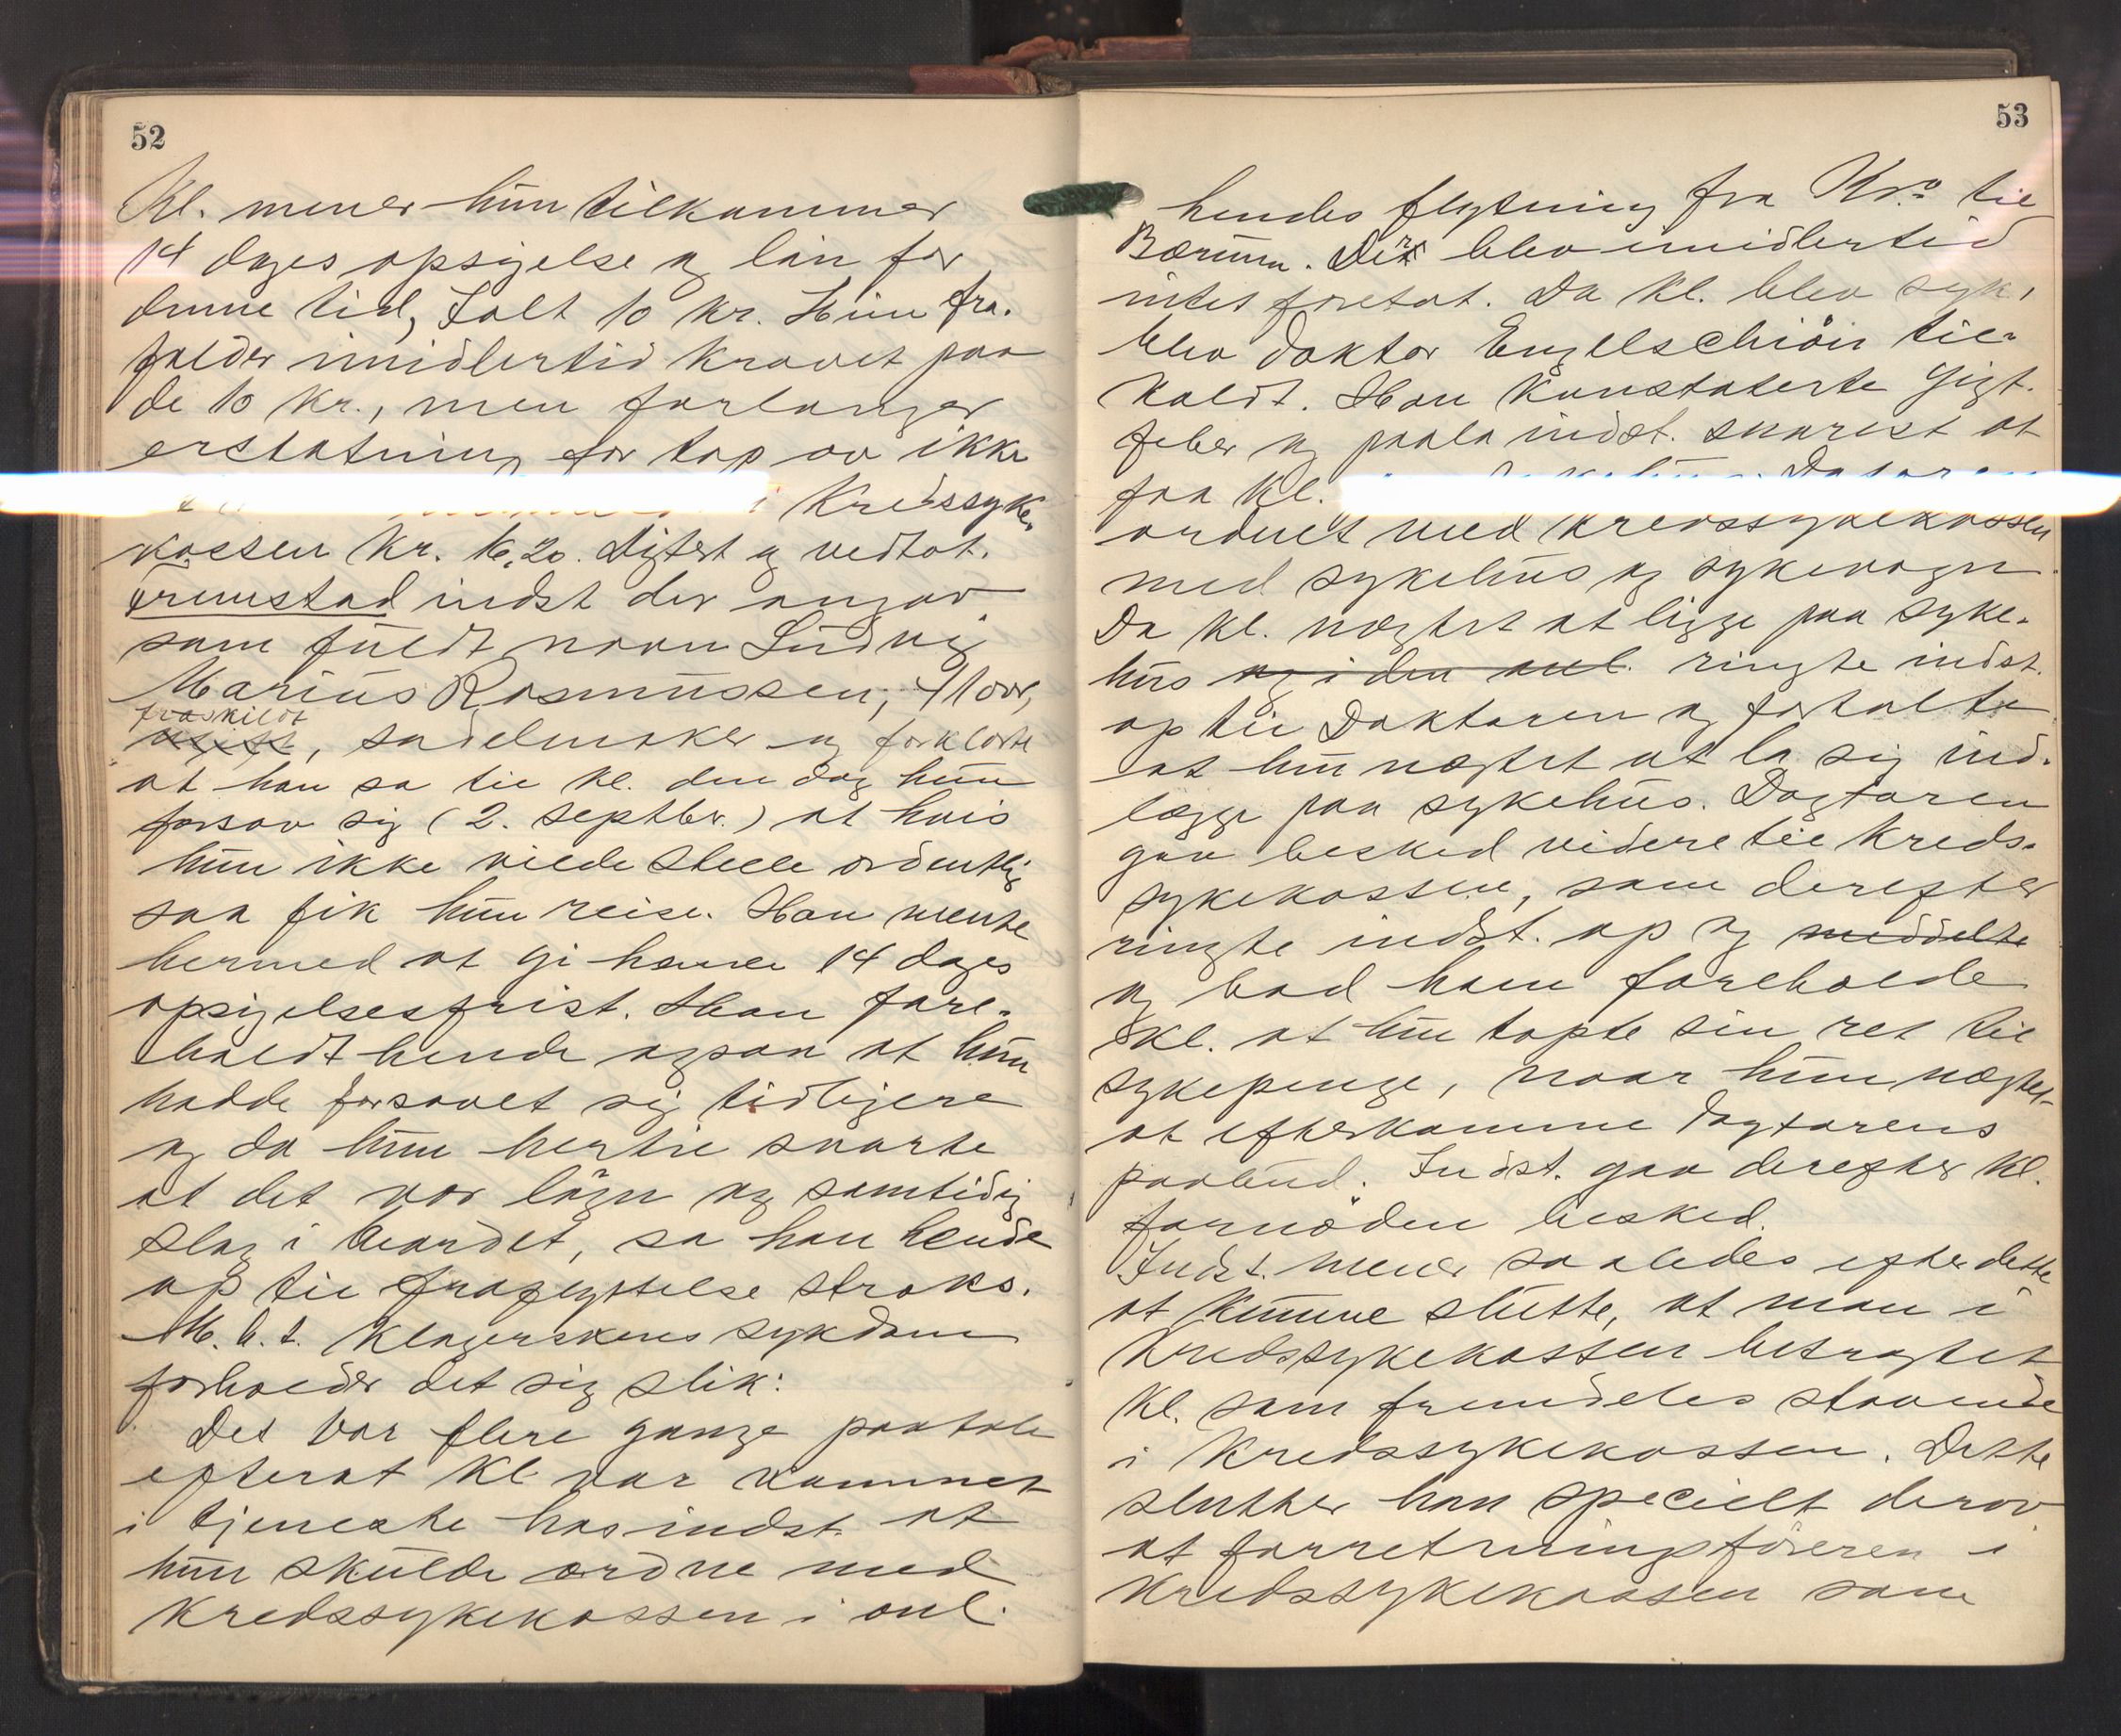 52
Kl. mener hun tilkommer
14 dages opsigelse og løn for
denne tid, Ialt 10 kr. Hun fra-
falder imidlertid kravet paa
de 10 kr., men forlanger
erstatning for tap av ikke
i Kredssyke-
kassen kr. 16,20. Digtert og vedtat.
indst der angav
som fuldt navn Ludvig
Marius Rasmussen, 41 aar,
fraskilt
ugift, sadelmaker og forklarte
at han sa til kl. den dag hun
forsov sig (2. septbr.) at hvis
hun ikke vilde stelle ordentlig
saa fik hun reise. Han mente
hermed at gi henne 14 dages
opsigelsesfrist. Han fore-
holdt hende ogsaa at hun
hadde forsovet sig tidligere
og da hun hertil svarte
at det var løgn og samtidig
slog i bordet, sa han hende
op til fraflyttelse straks.
M.h.t. klagerskens sykdom
forholder det sig slik:
Det var flere gange paatale
efterat kl. var kommet
i tjeneste hos indst. at
hun skulde ordne med
Kredssykekassen i anl.
53
hendes flytning fra Kr.a til
Bærum. Der blev imidlertid
intet foretat. Da kl. blev syk,
blev doktor Engelschiøn til-
kaldt. Han konstaterte gigt-
feber og paala indst. snarest at
faa kl.
ordnet med kredssykekassen
med sykehus og sykevogn.
Da kl. nægtet at ligge paa syke-
hus og i den anl. ringte indst.
op til Doktoren og fortalte
at hun nægtet at la sig ind-
lægge paa sykehus. Dogtoren
gav besked videre til Kreds-
sykekassen, som derefter
ringte indst. op og meddelte
og bad ham foreholde
kl. at hun tapte sin ret til
sykepenge, naar hun nægtet
at efterkomme dogtorens
paabud. Indst. gav derefter kl.
fornøden besked.
Indst. mener saaledes efter dette
at kunne slutte, at man i
Kredssykekassen betragtet
kl. som fremdeles staaende
i Kredssykekassen. Dette
slutter han specielt derav
at forretningsføreren i
Kredssykekassen som